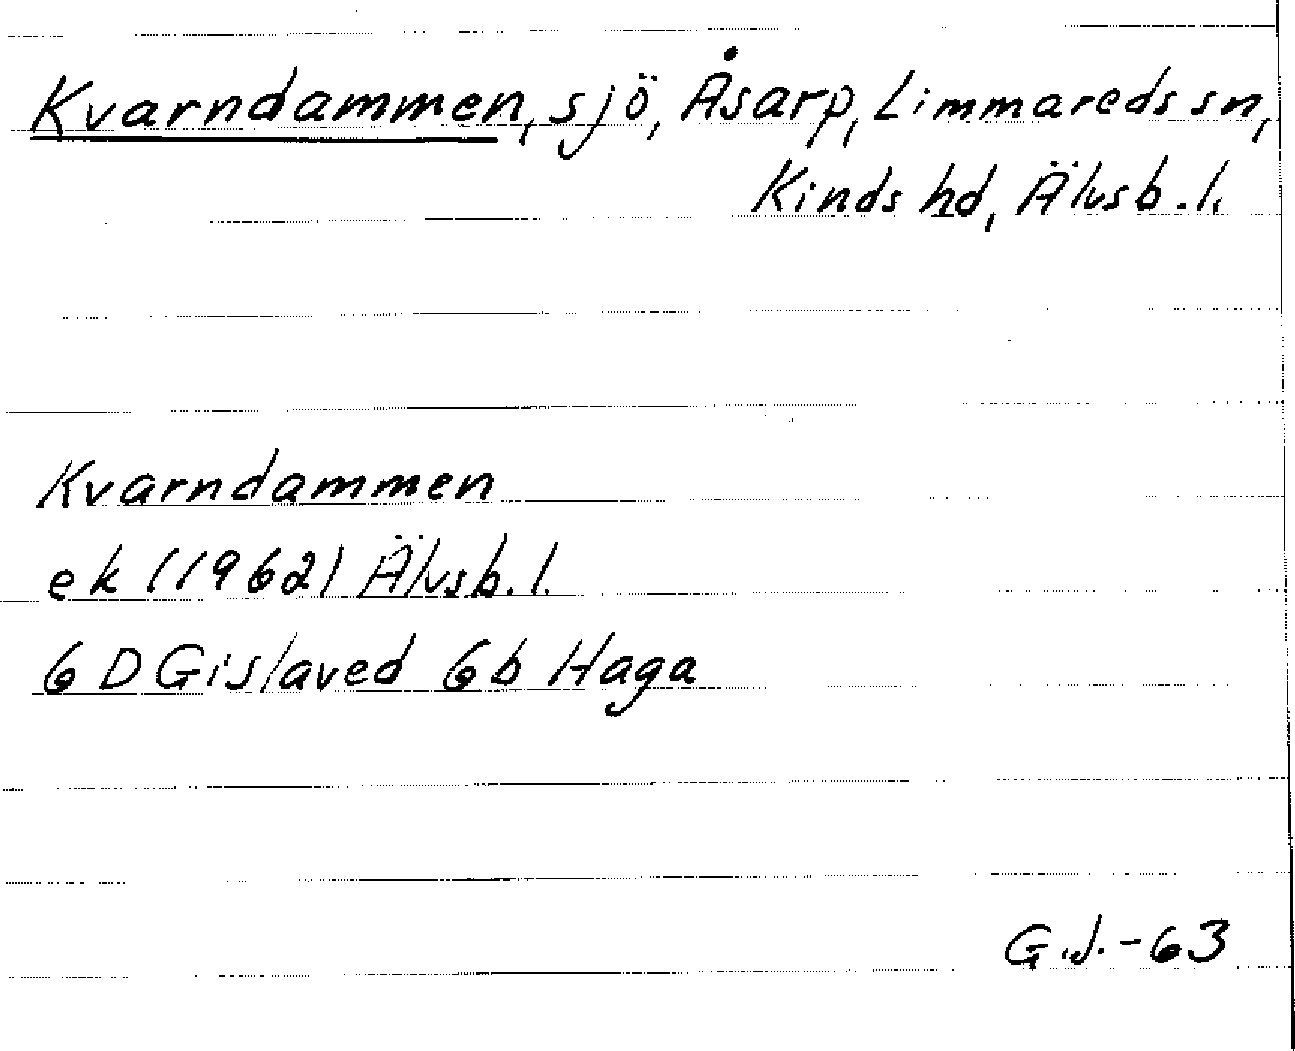 Kvarndammen, sjö, Åsarp, Limmareds sn,
Kinds hd, Älvsb.l.
Kvarndammen
ek (1962) Älvsb.l.
6D Gislaved 6b Haga
G.J.-63